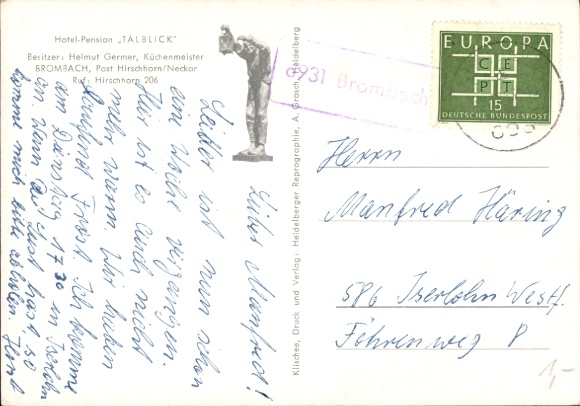 Hotel-Pension „TALBLICK"
Besitzer: Helmut Germer, Küchenmeister
BROMBACH, Post Hirschhorn/Neckar
Ruf: Hirschhorn 206
Lieber Manfred!
Leider ist nun schon
eine Woche vergangen.
Hier ist es auch nicht
mehr warm. Wir haben
laufend Frost. Ich komme
am Dienstag 17 30 in Iserlohn
an. Wenn Du Lust hast, so
komme mich bitte abholen. Horst
Klischee, Druck und Verlag: Heidelberger Reprographie, A. Grosch, Heidelberg
6931 Brombach
EUROPA
CEPT
15
DEUTSCHE BUNDESPOST
Herrn
Manfred Häring
586 Iserlohn Westf.
Föhrenweg 8
1,-